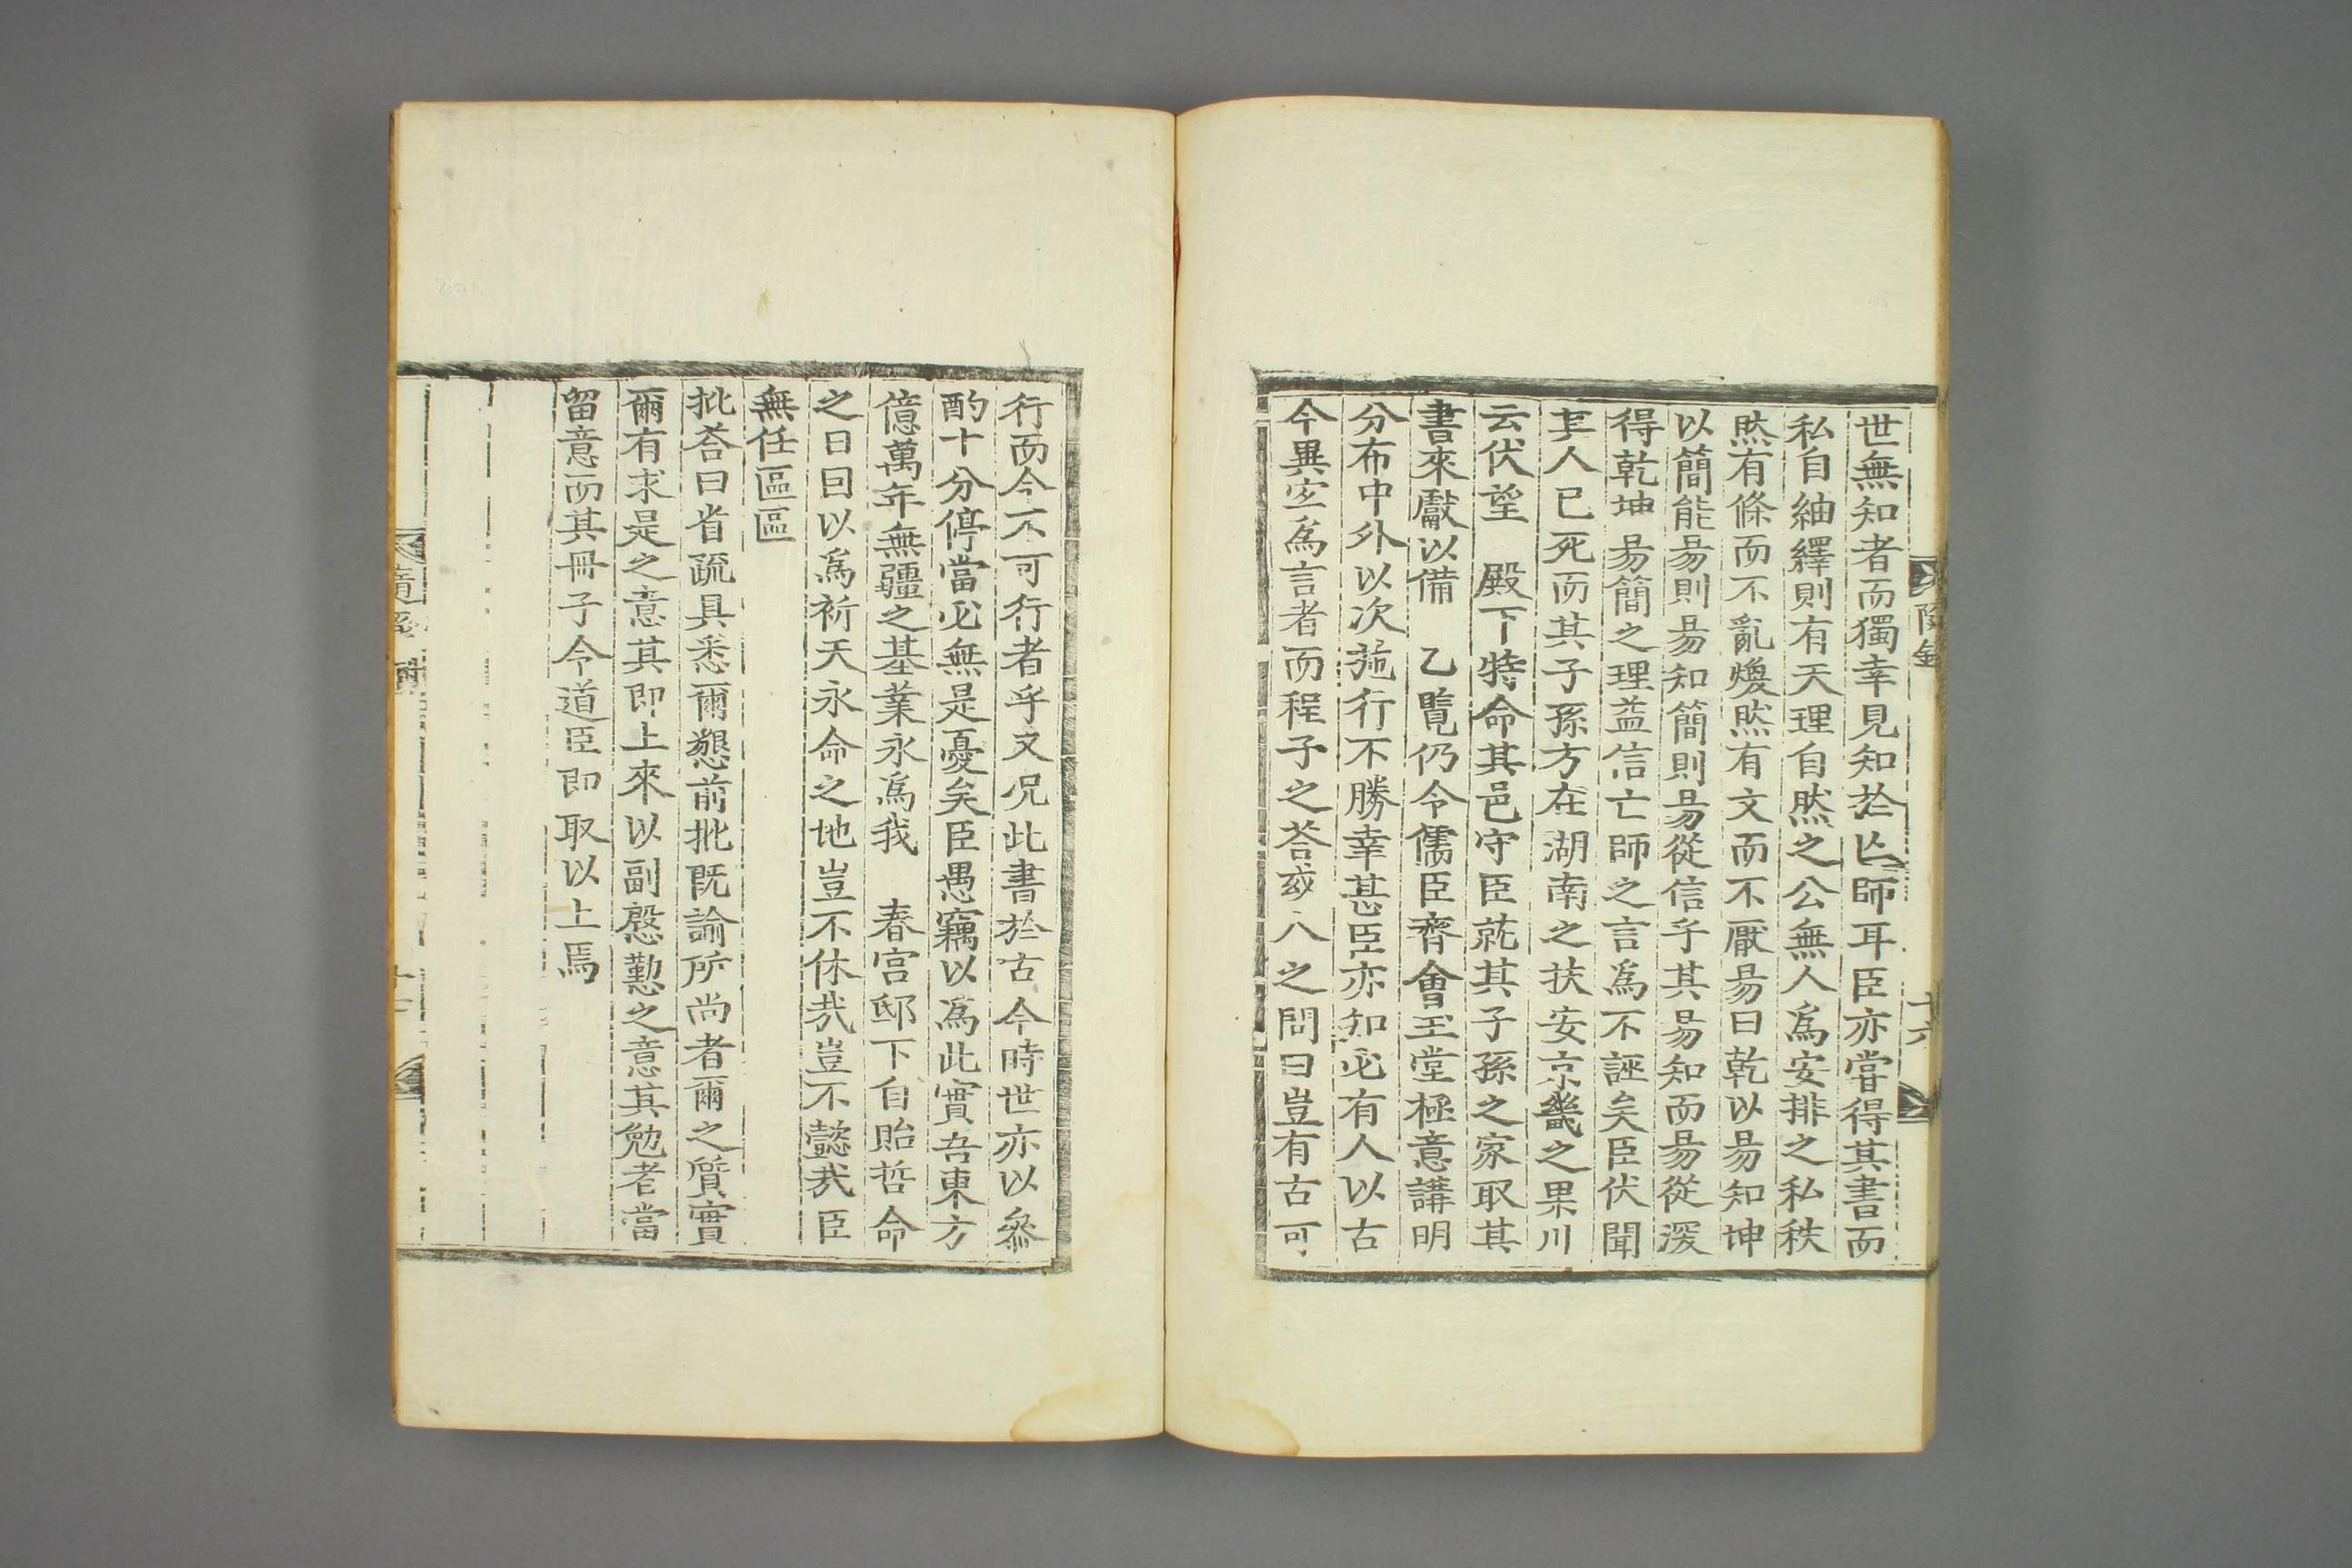 世無知者而獨幸見知於亡師耳臣亦嘗得其書而
私自紬繹則有天理自然之公無人爲安排之私秩
然有條而不亂煥然有文而不厭易曰乾以易知坤
以簡能易則易知簡則易從信乎其易知而易從深
得乾坤易簡之理益信亡師之言爲不誣矣臣伏聞
其人已死而其子孫方在湖南之扶安京畿之果川
云伏望 殿下特命其邑守臣就其子孫之家取其
書來獻以備 乙覽仍令儒臣齊會玉堂極意講明
分布中外以次施行不勝幸甚臣亦知必有人以古
今異宜爲言者而程子之答或人之問曰豈有古可
十六
行而今不可行者乎又况此書於古今時世亦以參
酌十分停當必無是憂矣臣愚竊以爲此實吾東方
億萬年無疆之基業永爲我 春宮邸下自貽哲命
之日曰以爲祈天永命之地豈不休哉豈不懿哉臣
無任區區
批答曰省疏具悉爾懇前批既諭所尚者爾之質實
爾有求是之意其即上來以副慇懃之意其勉者當
留意而其冊子令道臣即取以上焉